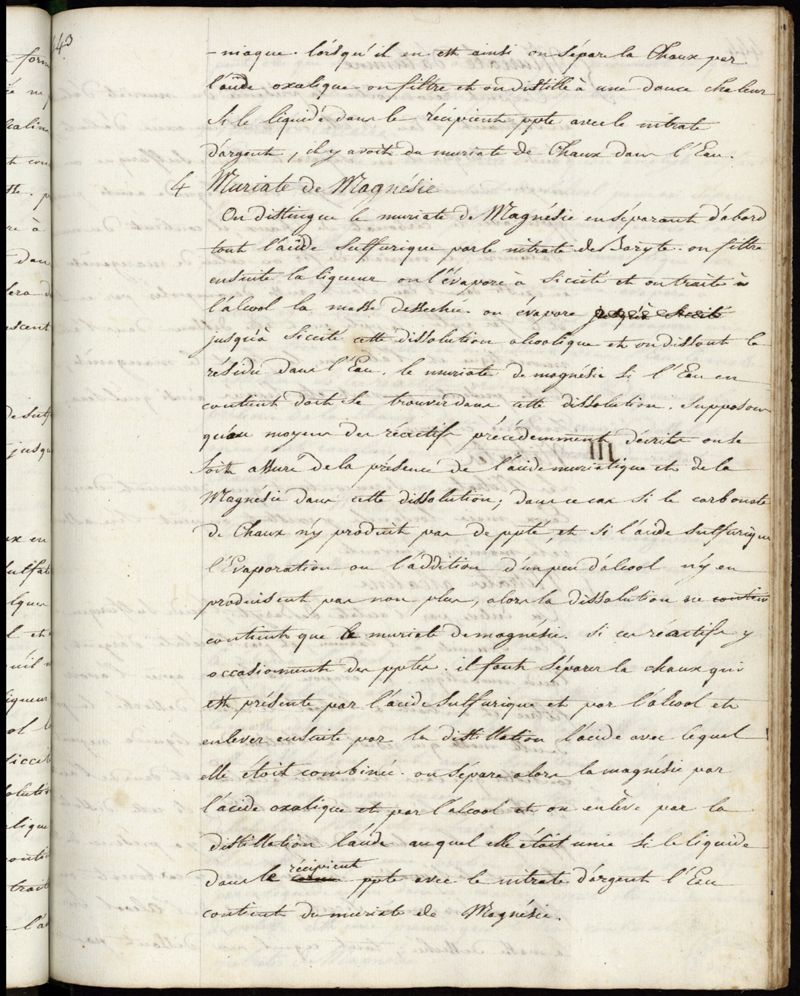 443
-niaque. lorsqu'il en est ainsi on sépare la Chaux par
l'acide oxalique on filtre et on distille à une douce chaleur
Si le liquide dans le récipient ppte avec le nitrate
d'argent, il y avoit du muriate de Chaux dans l'Eau.
4 Muriate de Magnésie
On distingue le muriate de Magnésie en séparant d'abord
tout l'acide Sulfurique par le nitrate de Baryte. on filtre
ensuite la liqueur on l'évapore à siccité et on traite à
l'alcool la masse dessechée. on évapore jusqu'à siccité
jusqu'à siccité cette dissolution alcoolique et on dissout le
résidu dans l'Eau. le muriate de magnésie si l'Eau en
contient doit se trouver dans cette dissolution. Supposons
qu'au moyen des réactifs précédemment décrits on se
soit assuré de la présence de l'acide muriatique et de la
Magnésie dans cette dissolution; dans ce cas si le carbonate
de Chaux n'y produit pas de ppté, et si l'acide sulfurique
l'Evaporation ou l'addition d'un peu d'alcool n'y en
produisent pas non plus, alors la dissolution ne contien
contient que le muriate de magnésie. Si ces réactifs y
occasionnent des pptés. il faut séparer la chaux qui
est présente par l'acide Sulfurique et par l'alcool et
enlever ensuite par la distillation l'acide avec lequel
elle étoit combinée. on sépare alors la magnésie par
l'acide oxalique et par l'alcool et on enlève par la
distillation l'acide auquel elle étoit unie si le liquide
dans le récipient ppte avec le nitrate d'argent l'Eau
contient du muriate de Magnésie.